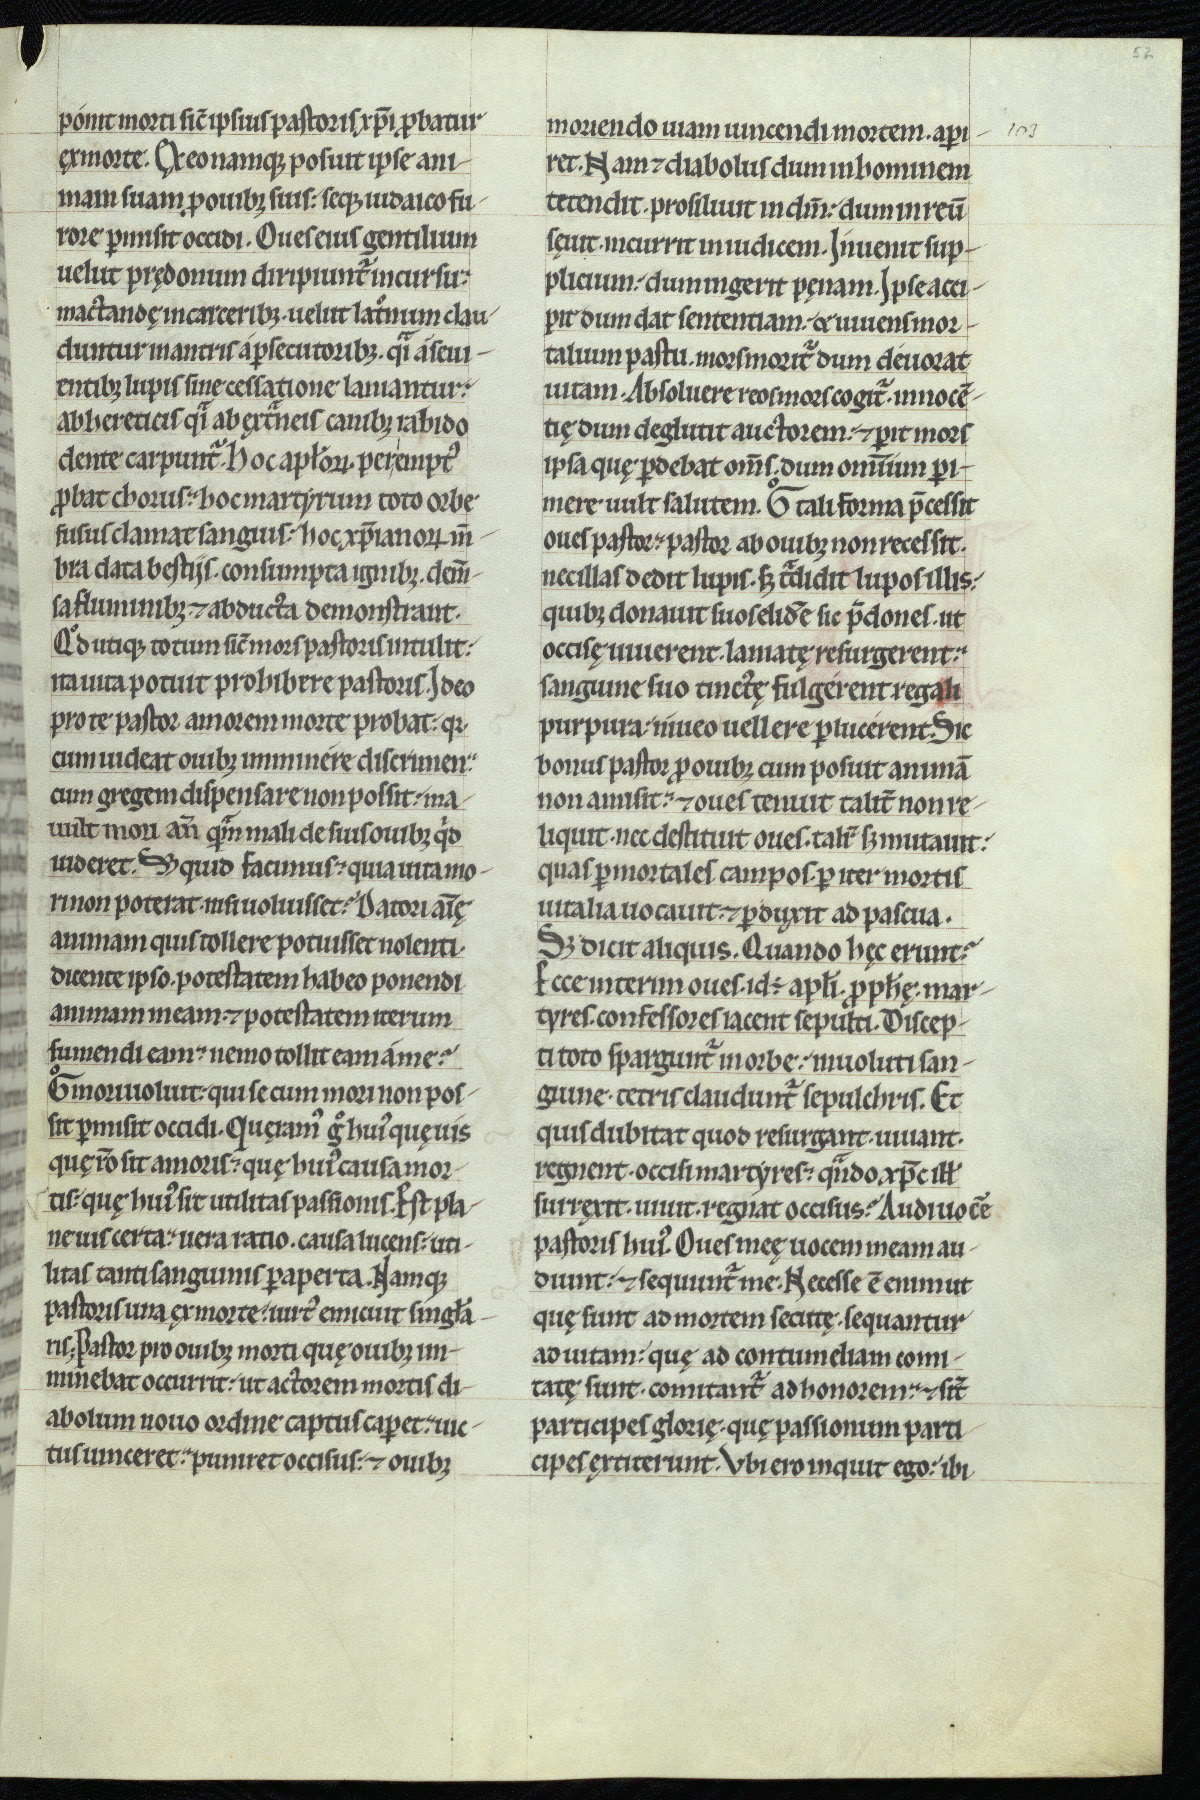 52
103
ponit morti sic̄ ipsius pastoris xp̄i ꝓbatur
ex morte. Ex eo namq; posuit ipse ani-
mam suam ꝓ ouibꝫ suis: seq; iudaico fu-
rore ꝑmisit occidi. Oues eius gentilium
uelut prędonum diripiunt᷑ incursu:
mactandę in carceribꝫ. uelut latͦnum clau-
duntur in antris á ꝑsecutoribꝫ. qͣi á seui-
entibꝫ lupis sine cessatione laniantur:
ab hereticis qͣi ab extͣneis canibꝫ rabido
dente carpunt᷑. Hoc apl̄oꝝ peremptꝰ
ꝓbat chorus: hoc martyrum toto orbe
fusus clamat sanguis: hoc xp̄ianoꝝ m̄-
bra data bestijs. consumpta ignibꝫ. dem̄-
sa fluminibꝫ ⁊ abducta demonstrant.
Qͦd utiq; totum sic̄ mors pastoris intulit:
ita uita potuit prohibere pastoris. Ideo
pro te pastor amorem morte probat: qꝛ
cum uideat ouibꝫ imminére discrimen:
cum gregem dispensare non possit: ma-
uult mori an̄ qͣm mali de suis ouibꝫ qͥd
uideret. Sꝫ quid facimus: quia uita mo-
ri non poterat nisi uoluisset: Datori aīę
animam quis tollere potuisset nolenti.
dicente ipso. potestatem habeo ponendi
animam meam: ⁊ potestatem iterum
sumendi eam: nemo tollit eam á me:
Gͦ mori uoluit: qui se cum mori non pos-
sit ꝑmisit occidi. Quęramꝰ gͦ huiꝰ quę uis
quę rͦo sit amoris: quę huiꝰ causa mor-
tis: quę huiꝰ sit utilitas passionis. Est pla-
ne uis certa: uera ratio. causa lucens: uti-
litas tanti sanguinis ꝑaperta. Namq;
pastoris una ex morte: uirtꝰ emicuit singl̄a-
ris; Pastor pro ouibꝫ morti quę ouibꝫ im-
minebat occurrit: ut actorem mortis di-
abolum nouo ordine captus caperet: uic-
tus uinceret: puniret occisus: ⁊ ouibꝫ
moriendo uiam uincendi mortem. apͥi-
ret. Nam ⁊ diabolus dum in hominem
tetendit. prosiluit in dm̄: dum in reū
sęuit. incurrit in iudicem. Inuenit sup-
plicium: dum ingerit pęnam. Ipse acci-
pit dum dat sententiam: & uiuens mor-
talium pastu. mors morit᷑ dum déuorat
uitam. Absoluere reos mors cogit᷑. innocē-
tię dum deglutit auctorem: ⁊ ꝑit mors
ipsa quę ꝑdebat om̄s. dum omīum ꝑi-
mere uult salutem. Gͦ tali forma p̄cessit
oues pastor: pastor ab ouibꝫ non recessit.
nec illas dedit lupis. sꝫ tͣdidit lupos illis:
quibꝫ donauit suos elidͤe sic p̄dones. ut
occisę uiuerent. laniatę resurgerent:
sanguine suo tinctę fulgérent regali
purpura: niueo uellere ꝑlucérent. Sic
bonus pastor ꝓ ouibꝫ cum posuit animā
non amisit: ⁊ oues tenuit talit̄ non re-
liquit. nec destituit oues. talit̄ sꝫ inuitauit:
quas ꝑ mortales campos. ꝑ iter mortis
uitalia uocauit: ⁊ ꝑduxit ad pascua.
Sꝫ dicit aliquis. Quando hęc erunt:
Ecce interim oues. id÷ apl̄i. ꝓph̄ę. mar-
tyres. confessores iacent sepulti. Discep-
ti toto spargunt᷑ in orbe: inuoluti san-
guine. tetris claudunt᷑ sepulchris. Et
quis dubitat quod resurgant. uiuant.
regnent. occisi martyres: qͣndo xp̄c ill̄
surrexit. uiuit. regnat occisus: Audi uocē
pastoris huiꝰ. Oues meę uocem meam au-
diunt: ⁊ sequunt᷑ me. Necesse ē enim ut
quę sunt ad mortem secutę. sequantur
ad uitam: quę ad contumeliam comi-
tatę sunt. comitant᷑ ad honorem: ⁊ sit᷑
participes glorię. quę passionum parti-
cipes extiterunt. Vbi ero inquit ego: ibi